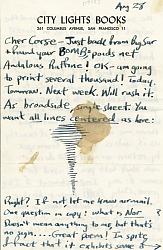 Aug 28
CITY LIGHTS BOOKS
261 COLUMBUS AVENUE, SAN FRANCISCO 11
Cher Corso — Just back from Big Sur
& found your BOMB = pounds net
Andalous Ruffino! OK — am going
to print several thousand! Today.
Tomorrow. Next week. Will rush it.
As broadside, single sheet. You
want all lines centered, as here:
Right? If not let me know airmail.
One question in copy: what is NOR ?
Doesn't mean anything to me, but that's
no sign..... Great Poem! In spite
of fact that it exhibits some